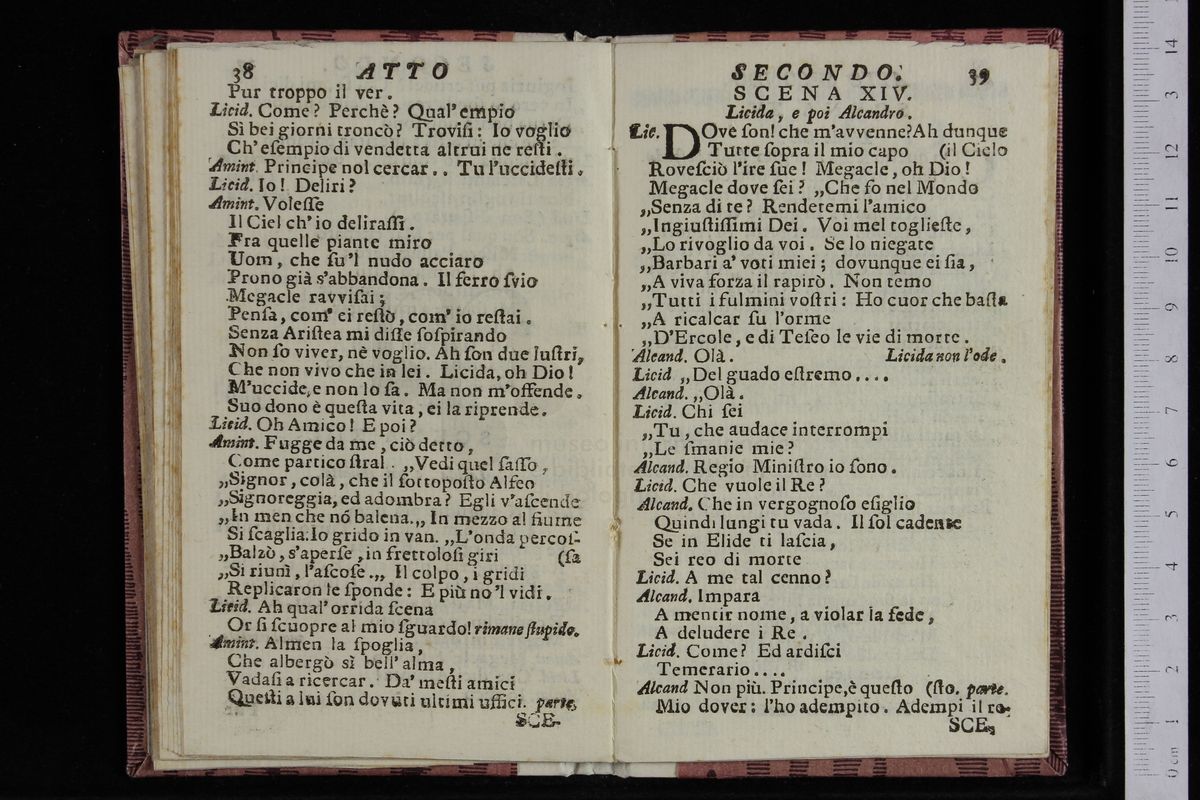 38 ATTO
Pur troppo il ver.
Licid. Come? Perchè? Qual' empio
Sì bei giorni troncò? Troviſi: Io voglio
Ch'eſempio di vendetta altrui ne reſti.
Amint. Principe nol cercar.. Tu l'uccideſti.
Licid. Io! Deliri?
Amint. Voleſſe
Il Ciel ch' io deliraſſi.
Fra quelle piante miro
Uom, che ſu'l nudo acciaro
Prono già s'abbandona. Il ferro ſvio
Megacle ravviſai;
Penſa, com' ei reſtò, com' io reſtai.
Senza Ariſtea mi diſſe ſoſpirando
Non ſo viver, nè voglio. Ah ſon due luſtri,
Che non vivo che in lei. Licida, oh Dio!
M'uccide, e non lo ſa. Ma non m'offende.
Suo dono è queſta vita, ei la riprende.
Licid. Oh Amico! E poi?
Amint. Fugge da me, ciò detto,
Come partico ſtral. „Vedi quel ſaſſo,
„Signor, colà, che il ſottopoſto Alfeo
„Signoreggia, ed adombra? Egli v'aſcende
„In men che nó balena.„ In mezzo al fiume
Si ſcaglia: Io grido in van. „L'onda percoſ-
„Balzò, s'aperſe, in frettoloſi giri (ſa
„Si riunì, l'aſcoſe.„ Il colpo, i gridi
Replicaron le ſponde: E più no'l vidi.
Licid. Ah qual' orrida ſcena
Or ſi ſcuopre al mio ſguardo! rimane ſtupido.
Amint. Almen la ſpoglia,
Che albergò sì bell' alma,
Vadaſi a ricercar. Da' meſti amici
Queſti a lui ſon dovuti ultimi uffici. parte,
SCE-
SECONDO. 39
SCENA XIV.
Licida, e poi Alcandro.
Lic. DOve ſon! che m'avvenne? Ah dunque
Tutte ſopra il mio capo (il Cielo
Roveſciò l'ire ſue! Megacle, oh Dio!
Megacle dove ſei? „Che fo nel Mondo
„Senza di te? Rendetemi l'amico
„Ingiuſtiſſimi Dei. Voi mel toglieſte,
„Lo rivoglio da voi. Se lo niegate
„Barbari a' voti miei; dovunque ei ſia,
„A viva forza il rapirò. Non temo
„Tutti i fulmini voſtri: Ho cuor che baſta
„A ricalcar ſu l'orme
„D'Ercole, e di Teſeo le vie di morte.
Alcand. Olà. Licida non l'ode.
Licid „Del guado eſtremo....
Alcand. „Olà.
Licid. Chi ſei
„Tu, che audace interrompi
„Le ſmanie mie?
Alcand. Regio Miniſtro io ſono.
Licid. Che vuole il Re?
Alcand. Che in vergognoſo eſiglio
Quindi lungi tu vada. Il ſol cadente
Se in Elide ti laſcia,
Sei reo di morte
Licid. A me tal cenno?
Alcand. Impara
A mentir nome, a violar la fede,
A deludere i Re.
Licid. Come? Ed ardiſci
Temerario....
Alcand Non più. Principe, è queſto (ſto. parte.
Mio dover: l'ho adempito. Adempi il re-
SCE-